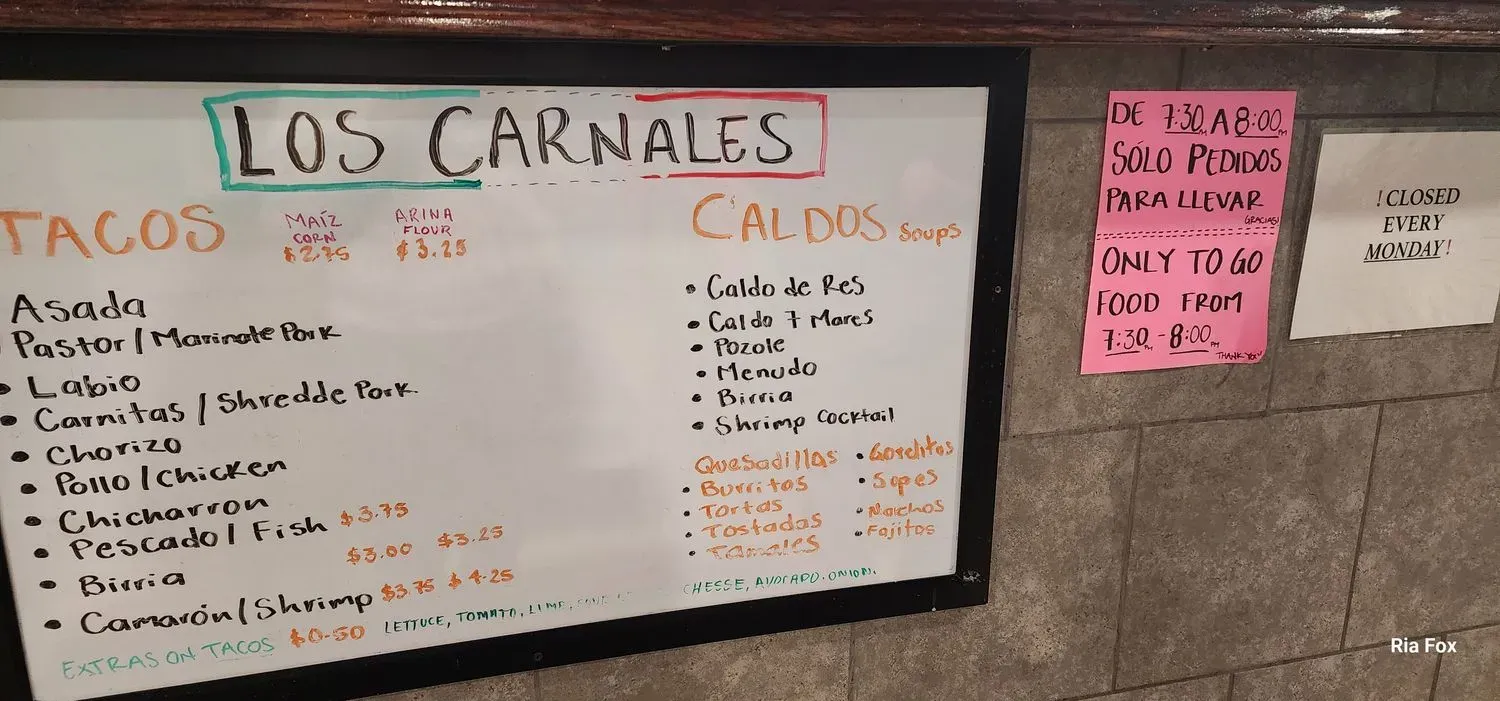 LOS CARNALES
TACOS
MAÍZ
CORN
$2.75
ARINA
FLOUR
$3.25
Asada
Pastor / Marinate Pork
• Labio
• Carnitas / Shredde Pork
• Chorizo
• Pollo / Chicken
• Chicharron
• Pescado / Fish $3.75
• Birria $3.00 $3.25
• Camarón / Shrimp $3.75 $4.25
EXTRAS ON TACOS $0.50 LETTUCE, TOMATO, LIME, CHESSE, AVOCADO, ONION.
CALDOS Soups
• Caldo de Res
• Caldo 7 Mares
• Pozole
• Menudo
• Birria
• Shrimp Cocktail
Quesadillas
• Burritos
• Tortas
• Tostadas
• Tamales
• Gorditas
• Sopes
• Nachos
• Fajitas
DE 7:30PM A 8:00PM
SÓLO PEDIDOS
PARA LLEVAR
GRACIAS!
ONLY TO GO
FOOD FROM
7:30PM - 8:00PM
THANK YOU!
! CLOSED
EVERY
MONDAY !
Ria Fox